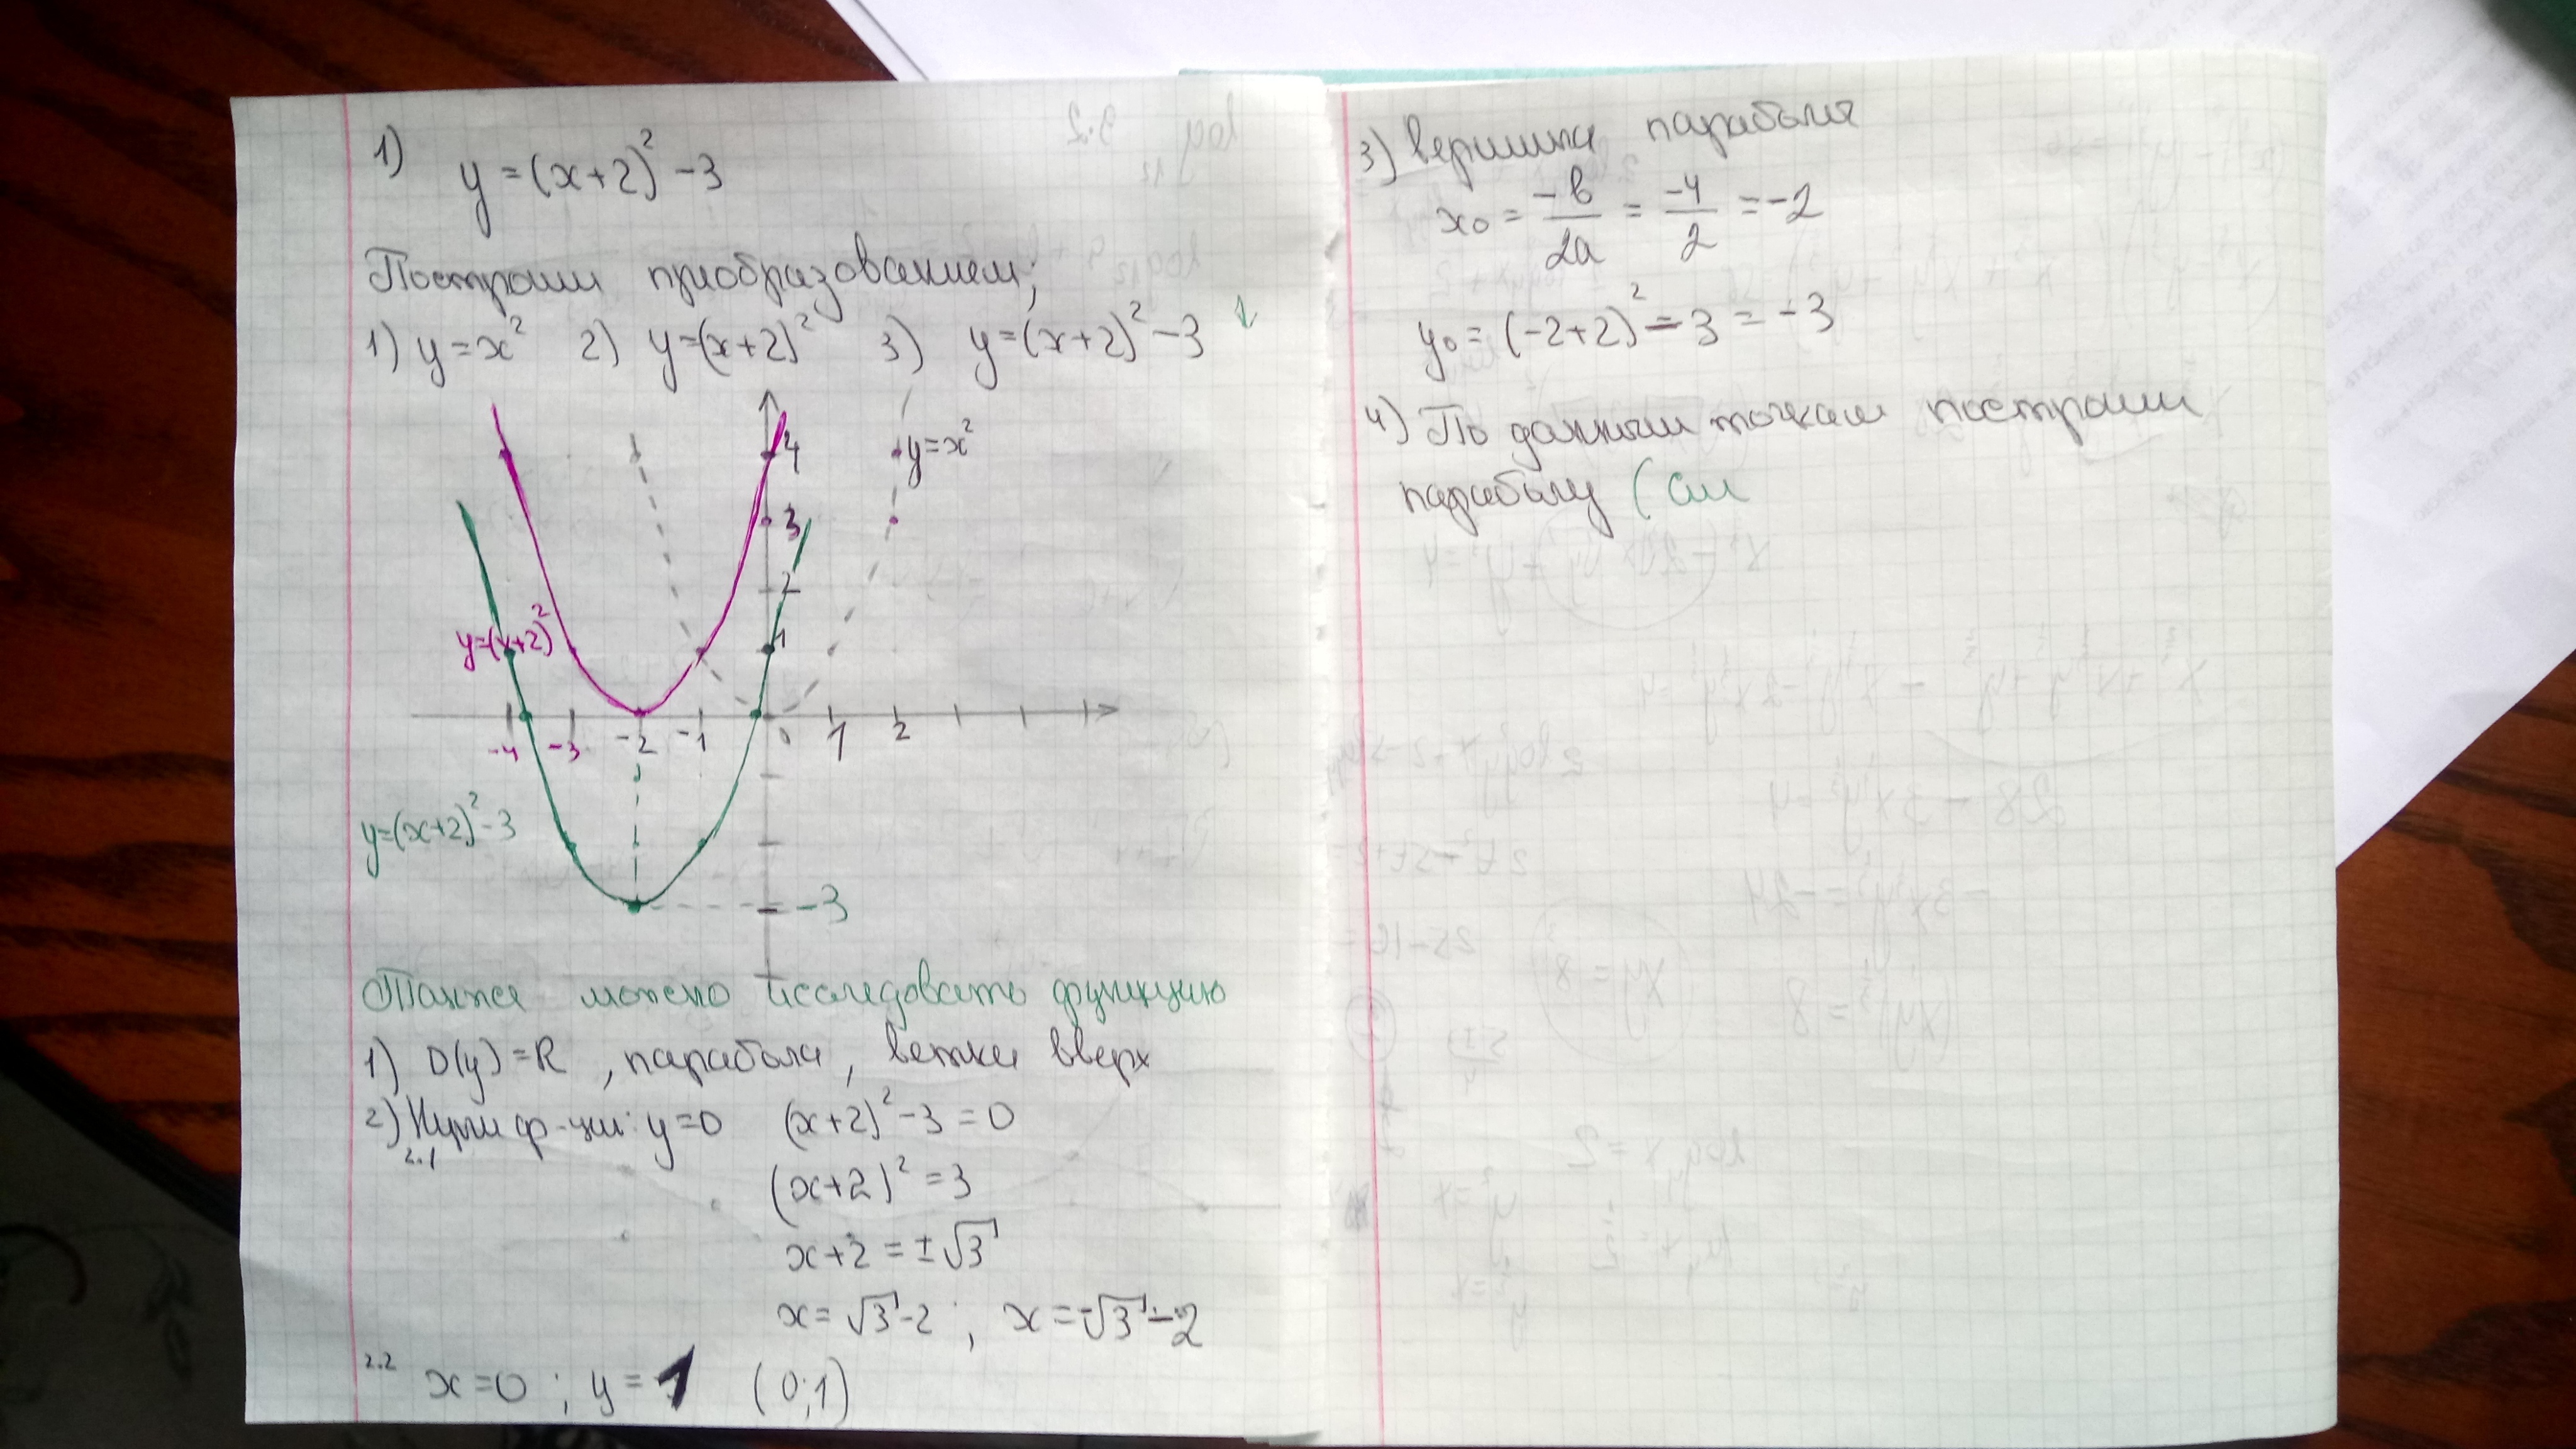 1) y=(x+2)²-3
Построим приобразованием;
1) y=x² 2) y=(x+2)² 3) y=(x+2)²-3 ↓
4 y=x²
3
2
y=(x+2)² 1
-4 -3 -2 -1 0 1 2
y=(x+2)²-3
-3
Также можно исследовать функцию
1) D(y)=R, парабола, ветки вверх
2) Нули ф-ции: y=0 (x+2)²-3=0
2.1
(x+2)²=3
x+2=±√3
x=√3-2; x=-√3-2
2.2 x=0; y=1 (0;1)
3) вершина параболы
x₀=-b/2a=-4/2=-2
y₀=(-2+2)²-3=-3
4) По данным точкам построим
параболу (см